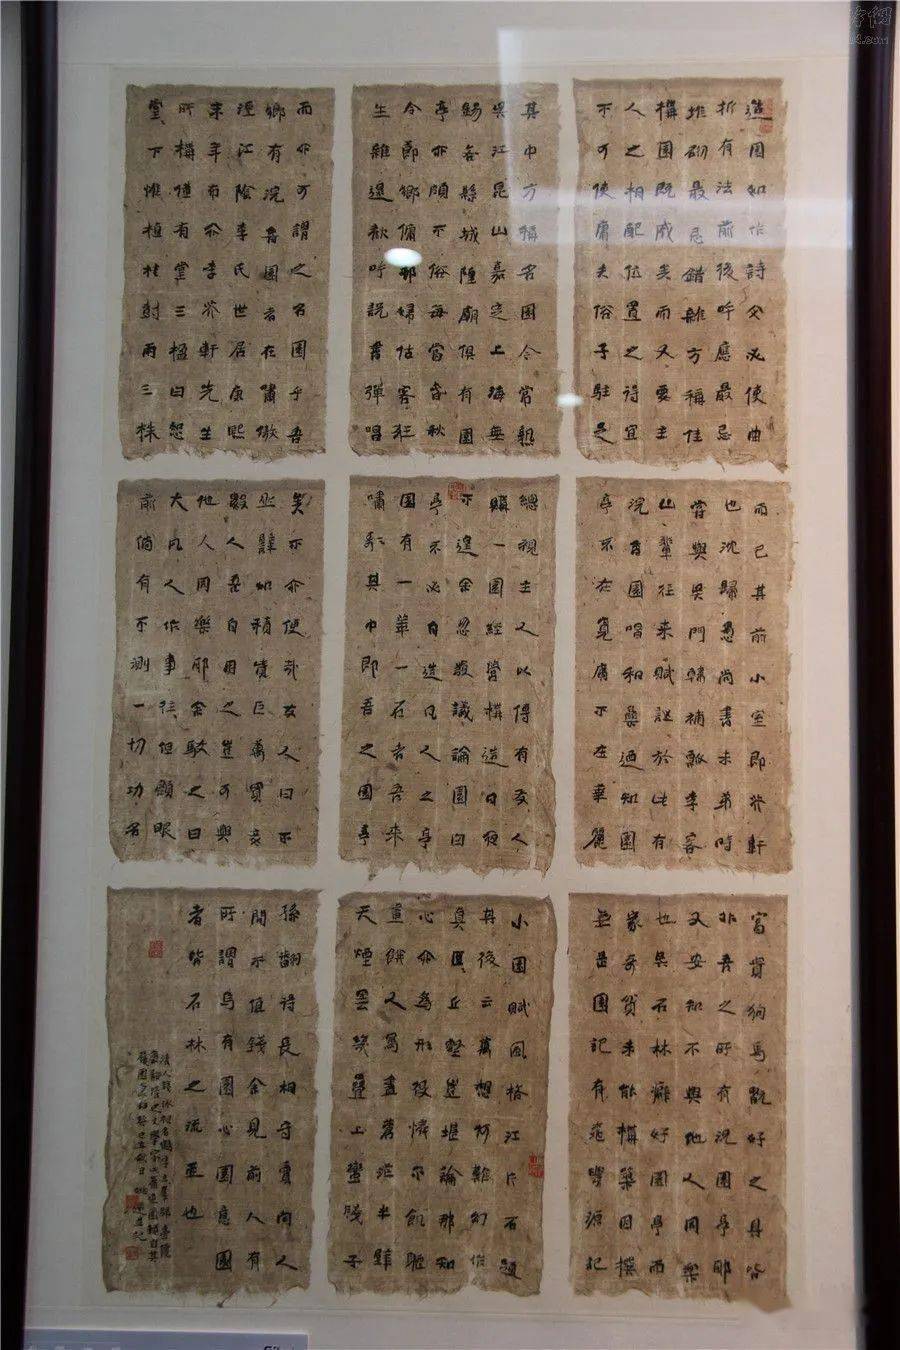 造園如作詩文必使曲
折有法前後呼應最忌
堆砌最忌錯雜方稱佳
構園既成矣而又要主
人之相配位置之得宜
不可使庸夫俗子駐足
其中方稱名園今常熟
吳江昆山嘉定上海無
錫各縣城隍廟俱有園
亭亦頗不俗每當春秋
令節鄉傭邨婦估客狂
生雜遝歡呼説書彈唱
而亦可謂之名園乎吾
鄉有浣香園者在嘯傲
涇江陰李氏世居康熙
末年有李芥軒先生
所構僅有堂三楹曰恕
堂、下惟植桂樹兩三株
而已其前小室即芥軒
也沈歸愚尚書未第時
嘗與吳門韓補瓢李客
山輩往來賦詩於此有
浣香園唱和集迺知園
亭不在寬廣不在華麗
總視主人以得有友人
購一園經營構造日夜
不遑余忽發議論園曰
亭不必自造凡人之亭
園有一華一石者吾來
嘯歌其中即吾之園亭
矣不亦便哉友人曰不
然譬如積貲巨萬買妾
數人吾自用之豈可與
他人同樂耶余駁之曰
大凡人作事往、但顧眼
前倘有不測一切功名
富貴狗馬翫好之具皆
非吾之所有況園亭耶
又安知不與他人同樂
也吳石林癖好園亭而
家奇貧未能構築因撰
無是園記有桃花源記
小園賦風格江片石題
其後云萬想何難幻作
真區丘壑豈堪論那知
心亦為形役憐爾飢軀
畫餅人寫盡蒼茫半壁
天煙雲幾疊上蠻牋子
孫翻得長相守賣向人
間不值錢余見前人有
所謂烏有園心園意園
者皆石林之流亞也